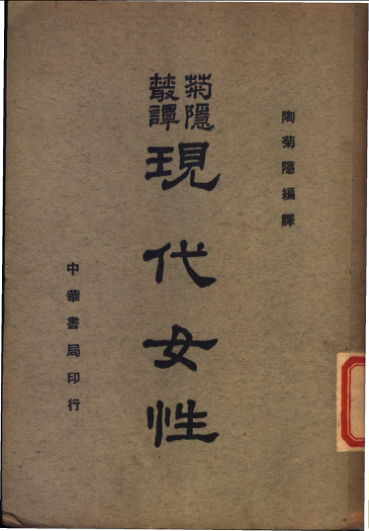 陶菊隱編譯
菊隱叢譚
現代女性
中華書局印行